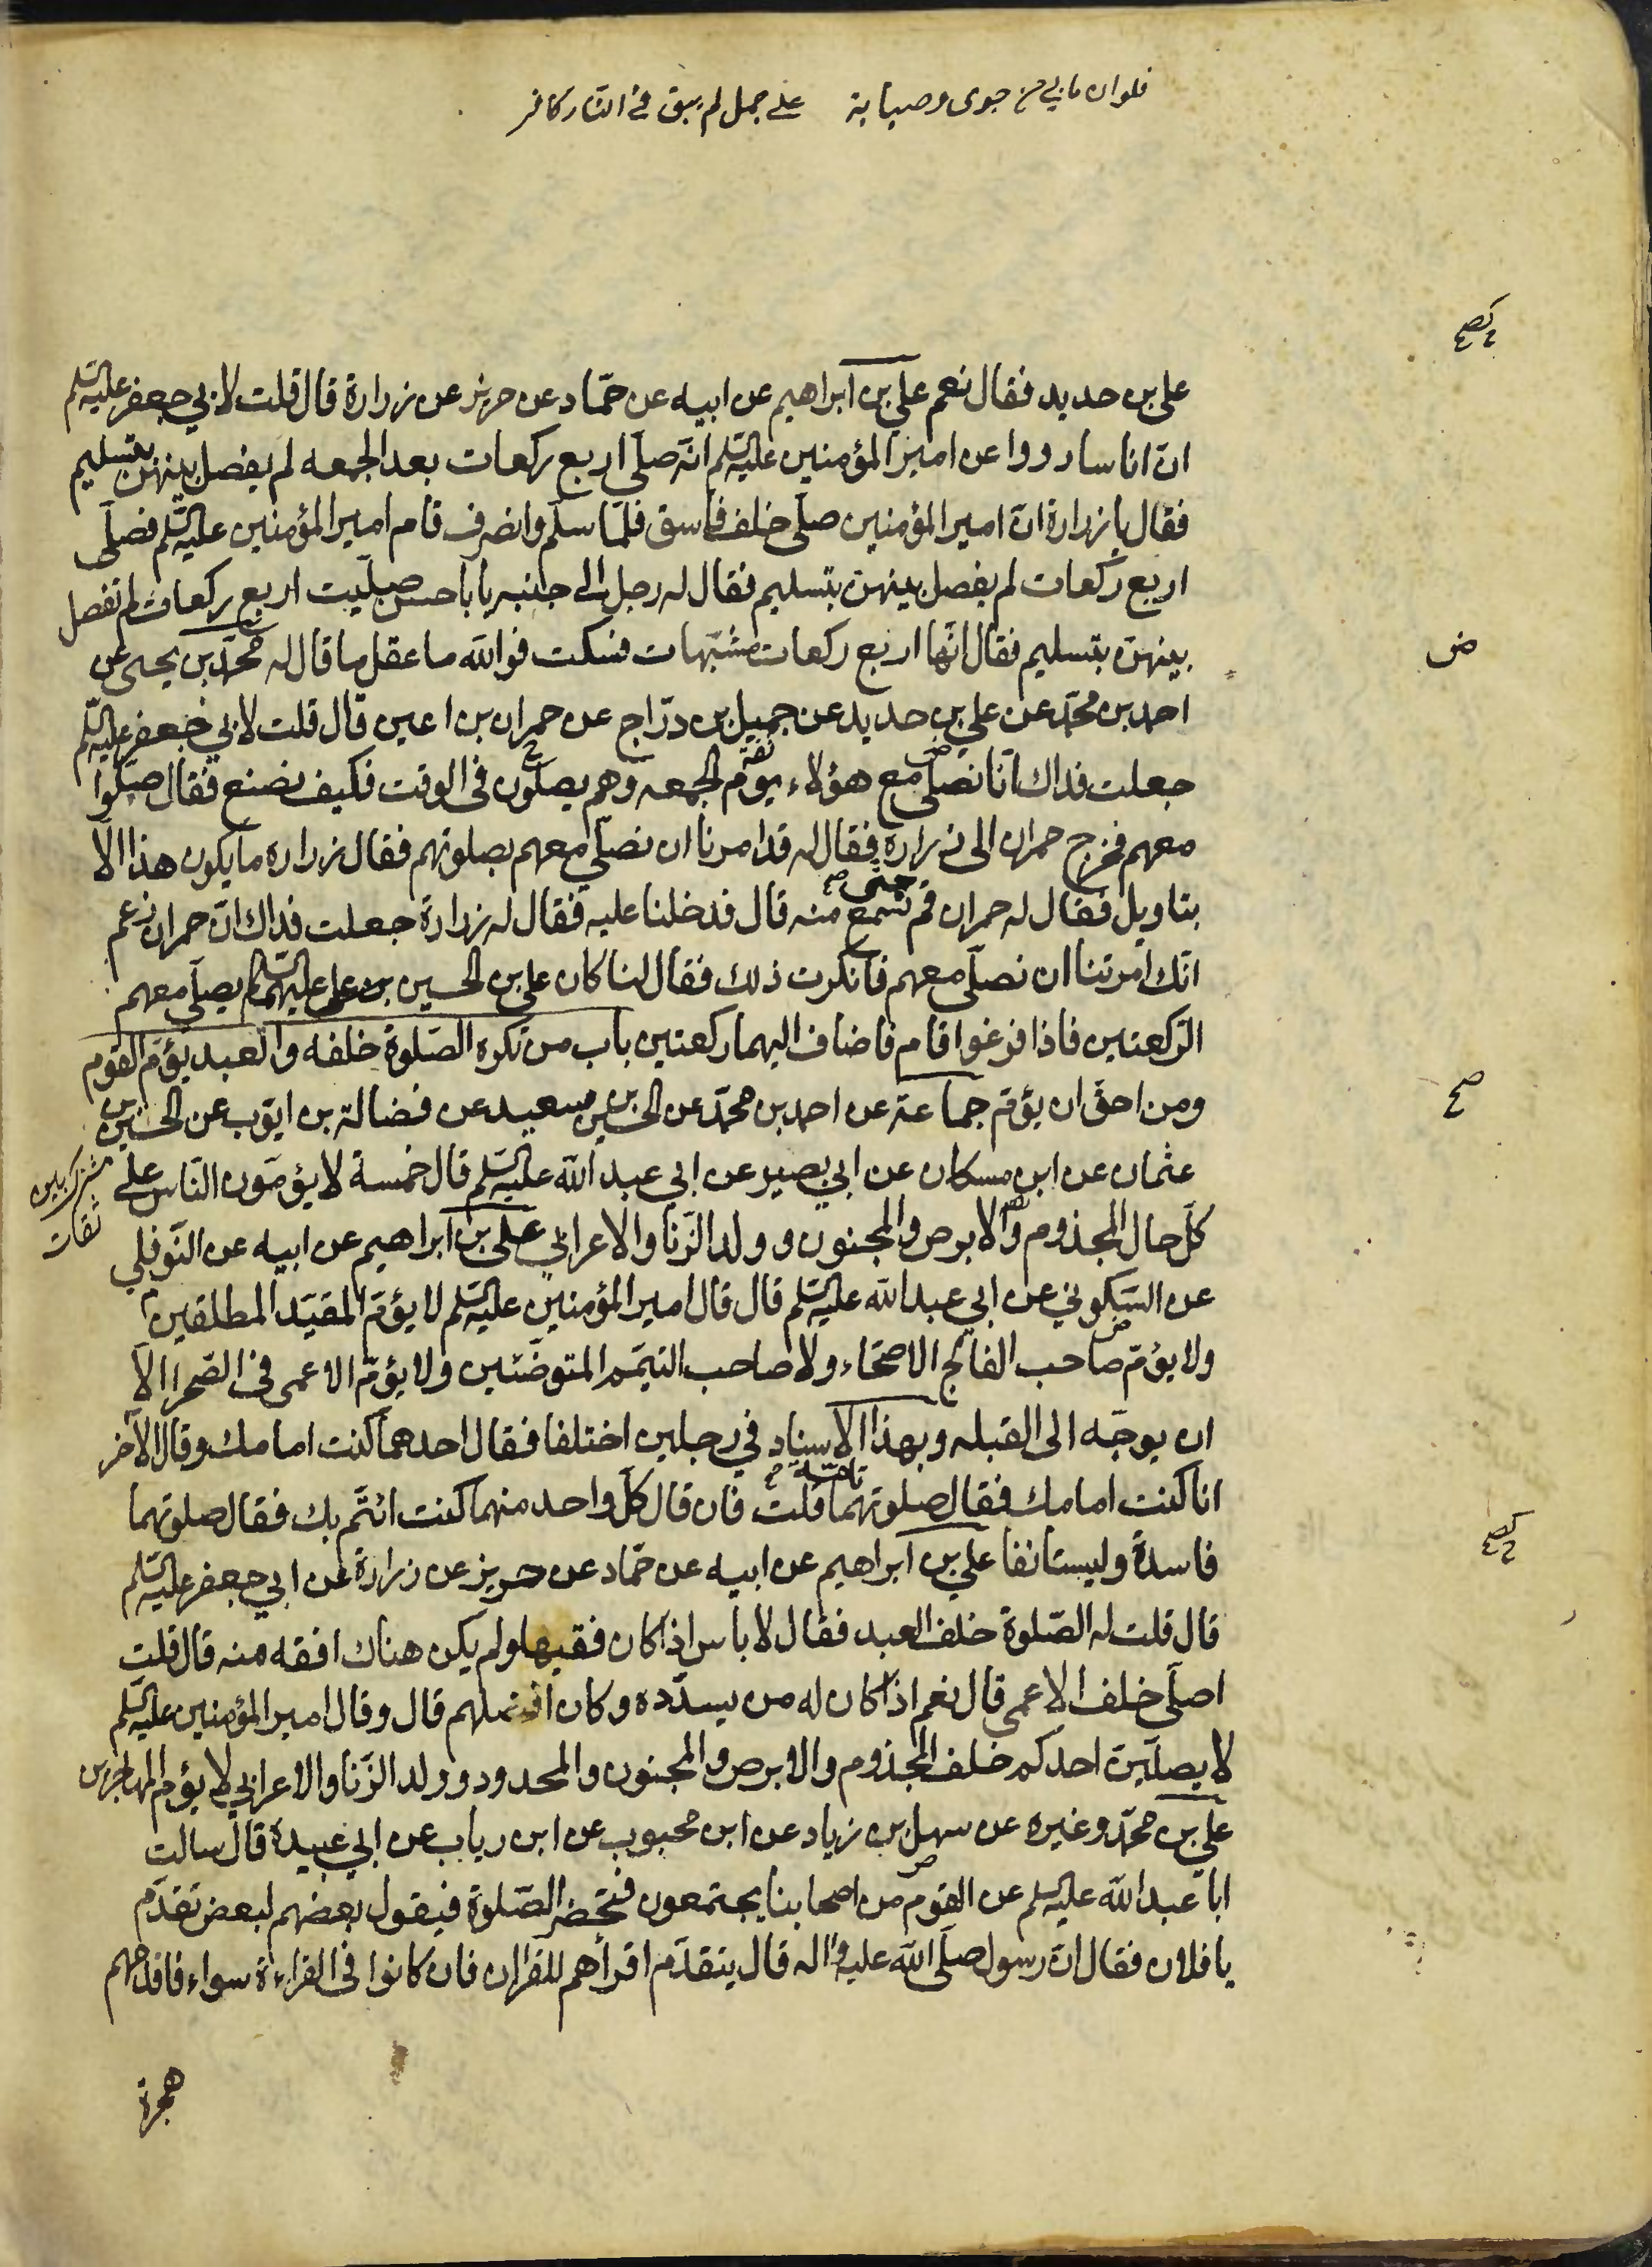 فلو ان ما بي من جوى وصبابة على جمل لم يبق في النار كافر
علي بن حديد فقال نعم علي بن ابراهيم عن ابيه عن حمّاد عن حريز عن زرارة قال قلت لابي جعفر عليه السّلم
انّ اناسا رووا عن امير المؤمنين عليه السّلم انّه صلّى اربع ركعات بعد الجمعه لم يفصل بينهنّ بتسليم
فقال يا زرارة انّ امير المؤمنين صلّى خلف فاسق فلمّا سلّم وانصرف قام امير المؤمنين عليه السّلم فصلّى
اربع ركعات لم يفصل بينهنّ بتسليم فقال له رجل الى جنبه يا باحسن صلّيت اربع ركعات لم تفصل
بينهنّ بتسليم فقال انّها اربع ركعات مشبّهات فسكت فوالله ما عقل ما قال له محمّد بن يحيى عن
ض
احمد بن محمّد عن علي بن حديد عن جميل بن درّاج عن حمران بن اعين قال قلت لابي جعفر عليه السّلم
جعلت فداك انّا نصلّي مع هؤلاء يوم الجمعه وهم يصلّون في الوقت فكيف نصنع فقال صلّوا
معهم فخرج حمران الى زرارة فقال له قد امرنا ان نصلّي معهم بصلوتهم فقال زرارة ما يكون هذا الّا
بتاويل فقال له حمران قم حتى تسمع منه قال فدخلنا عليه فقال له زرارة جعلت فداك انّ حمران زعم
انّك امرتنا ان نصلّي معهم فانكرت ذلك فقال لنا كان علي بن الحسين بن علي عليهما السّلم يصلّي معهم
الرّكعتين فاذا فرغوا قام فاضاف اليهما ركعتين باب من تكره الصّلوة خلفه والعبد يؤمّ القوم
ومن احقّ ان يؤمّ جماعة عن احمد بن محمّد عن الحسين بن سعيد عن فضالة بن ايّوب عن الحسين بن
صح
عثمان عن ابن مسكان عن ابي بصير عن ابي عبد الله عليه السّلم قال خمسة لا يؤمّون النّاس على
مشترك بين ثقات
كلّ حال المجذوم والابرص والمجنون وولد الزّنا والاعرابي علي بن ابراهيم عن ابيه عن النّوفلي
عن السّكوني عن ابي عبد الله عليه السّلم قال قال امير المؤمنين عليه السّلم لا يؤمّ المقيّد المطلقين
ولا يؤمّ صاحب الفالج الاصحّاء ولا صاحب التيمّم المتوضّئين ولا يؤمّ الاعمى في الصّحرا الّا
ان يوجّه الى القبله وبهذا الاسناد في رجلين اختلفا فقال احدهما كنت امامك وقال الاخر
انا كنت امامك فقال صلوتهما تامّة قلت فان قال كلّ واحد منهما كنت ائتمّ بك فقال صلوتهما
فاسدة وليستانفا علي بن ابراهيم عن ابيه عن حمّاد عن حريز عن زرارة عن ابي جعفر عليه السّلم
قال قلت له الصّلوة خلف العبد فقال لا باس اذا كان فقيها ولم يكن هناك افقه منه قال قلت
اصلّي خلف الاعمى قال نعم اذا كان له من يسدّده وكان افضلهم قال وقال امير المؤمنين عليه السّلم
لا يصلّينّ احدكم خلف المجذوم والابرص والمجنون والمحدود وولد الزّنا والاعرابي لا يؤم المهاجرين
علي بن محمّد وغيره عن سهل بن زياد عن ابن محبوب عن ابن رياب عن ابي عبيدة قال سالت
ابا عبد الله عليه السلم عن القوم من اصحابنا يجتمعون فتحضر الصّلوة فيقول بعضهم لبعض تقدّم
يا فلان فقال انّ رسول صلّى الله عليه واله قال يتقدّم اقرأهم للقران فان كانوا في القراءة سواء فاقدمهم
هجرة